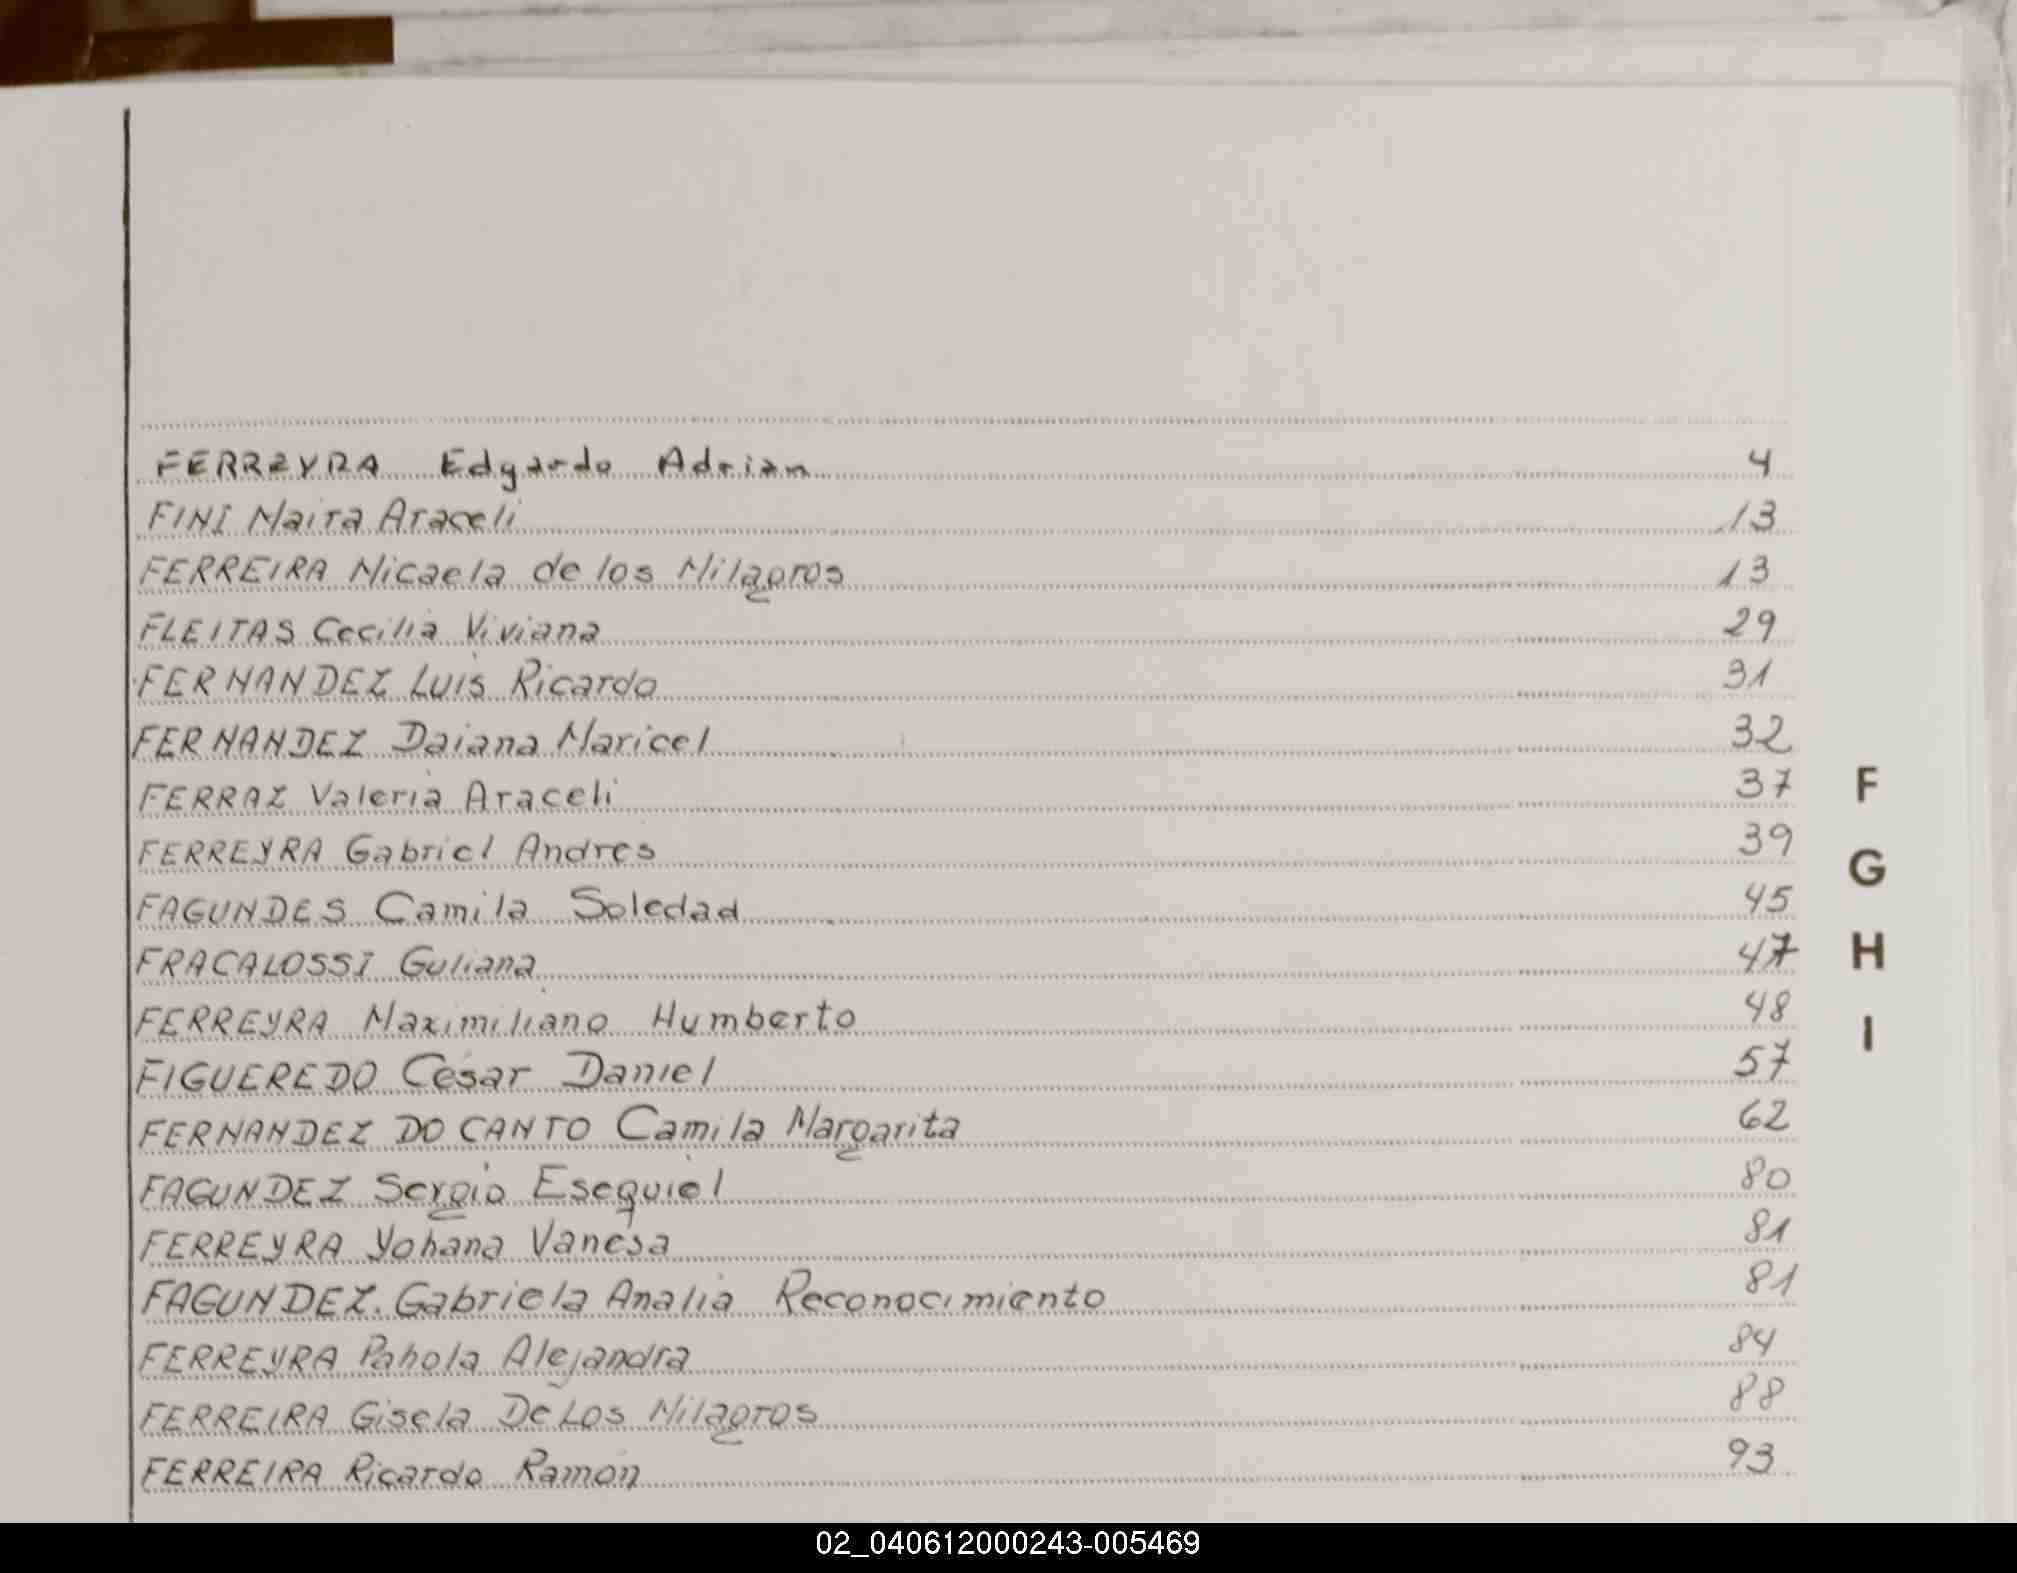 FERREYRA Edgardo Adrian 4
FINI Maira Araceli 13
FERREIRA Micaela de los Milagros 13
FLEITAS Cecilia Viviana 29
FERNANDEZ Luis Ricardo 31
FERNANDEZ Daiana Maricel 32
FERRAZ Valeria Araceli 37
FERREYRA Gabriel Andres 39
FAGUNDES Camila Soledad 45
FRACALOSSI Guliana 47
FERREYRA Maximiliano Humberto 48
FIGUEREDO César Daniel 57
FERNANDEZ DO CANTO Camila Margarita 62
FAGUNDEZ Sergio Esequiel 80
FERREYRA Yohana Vanesa 81
FAGUNDEZ. Gabriela Analia Reconocimiento 81
FERREYRA Pahola Alejandra 84
FERREIRA Gisela De Los Milagros 88
FERREIRA Ricardo Ramón 93
F
G
H
I
02_040612000243-005469